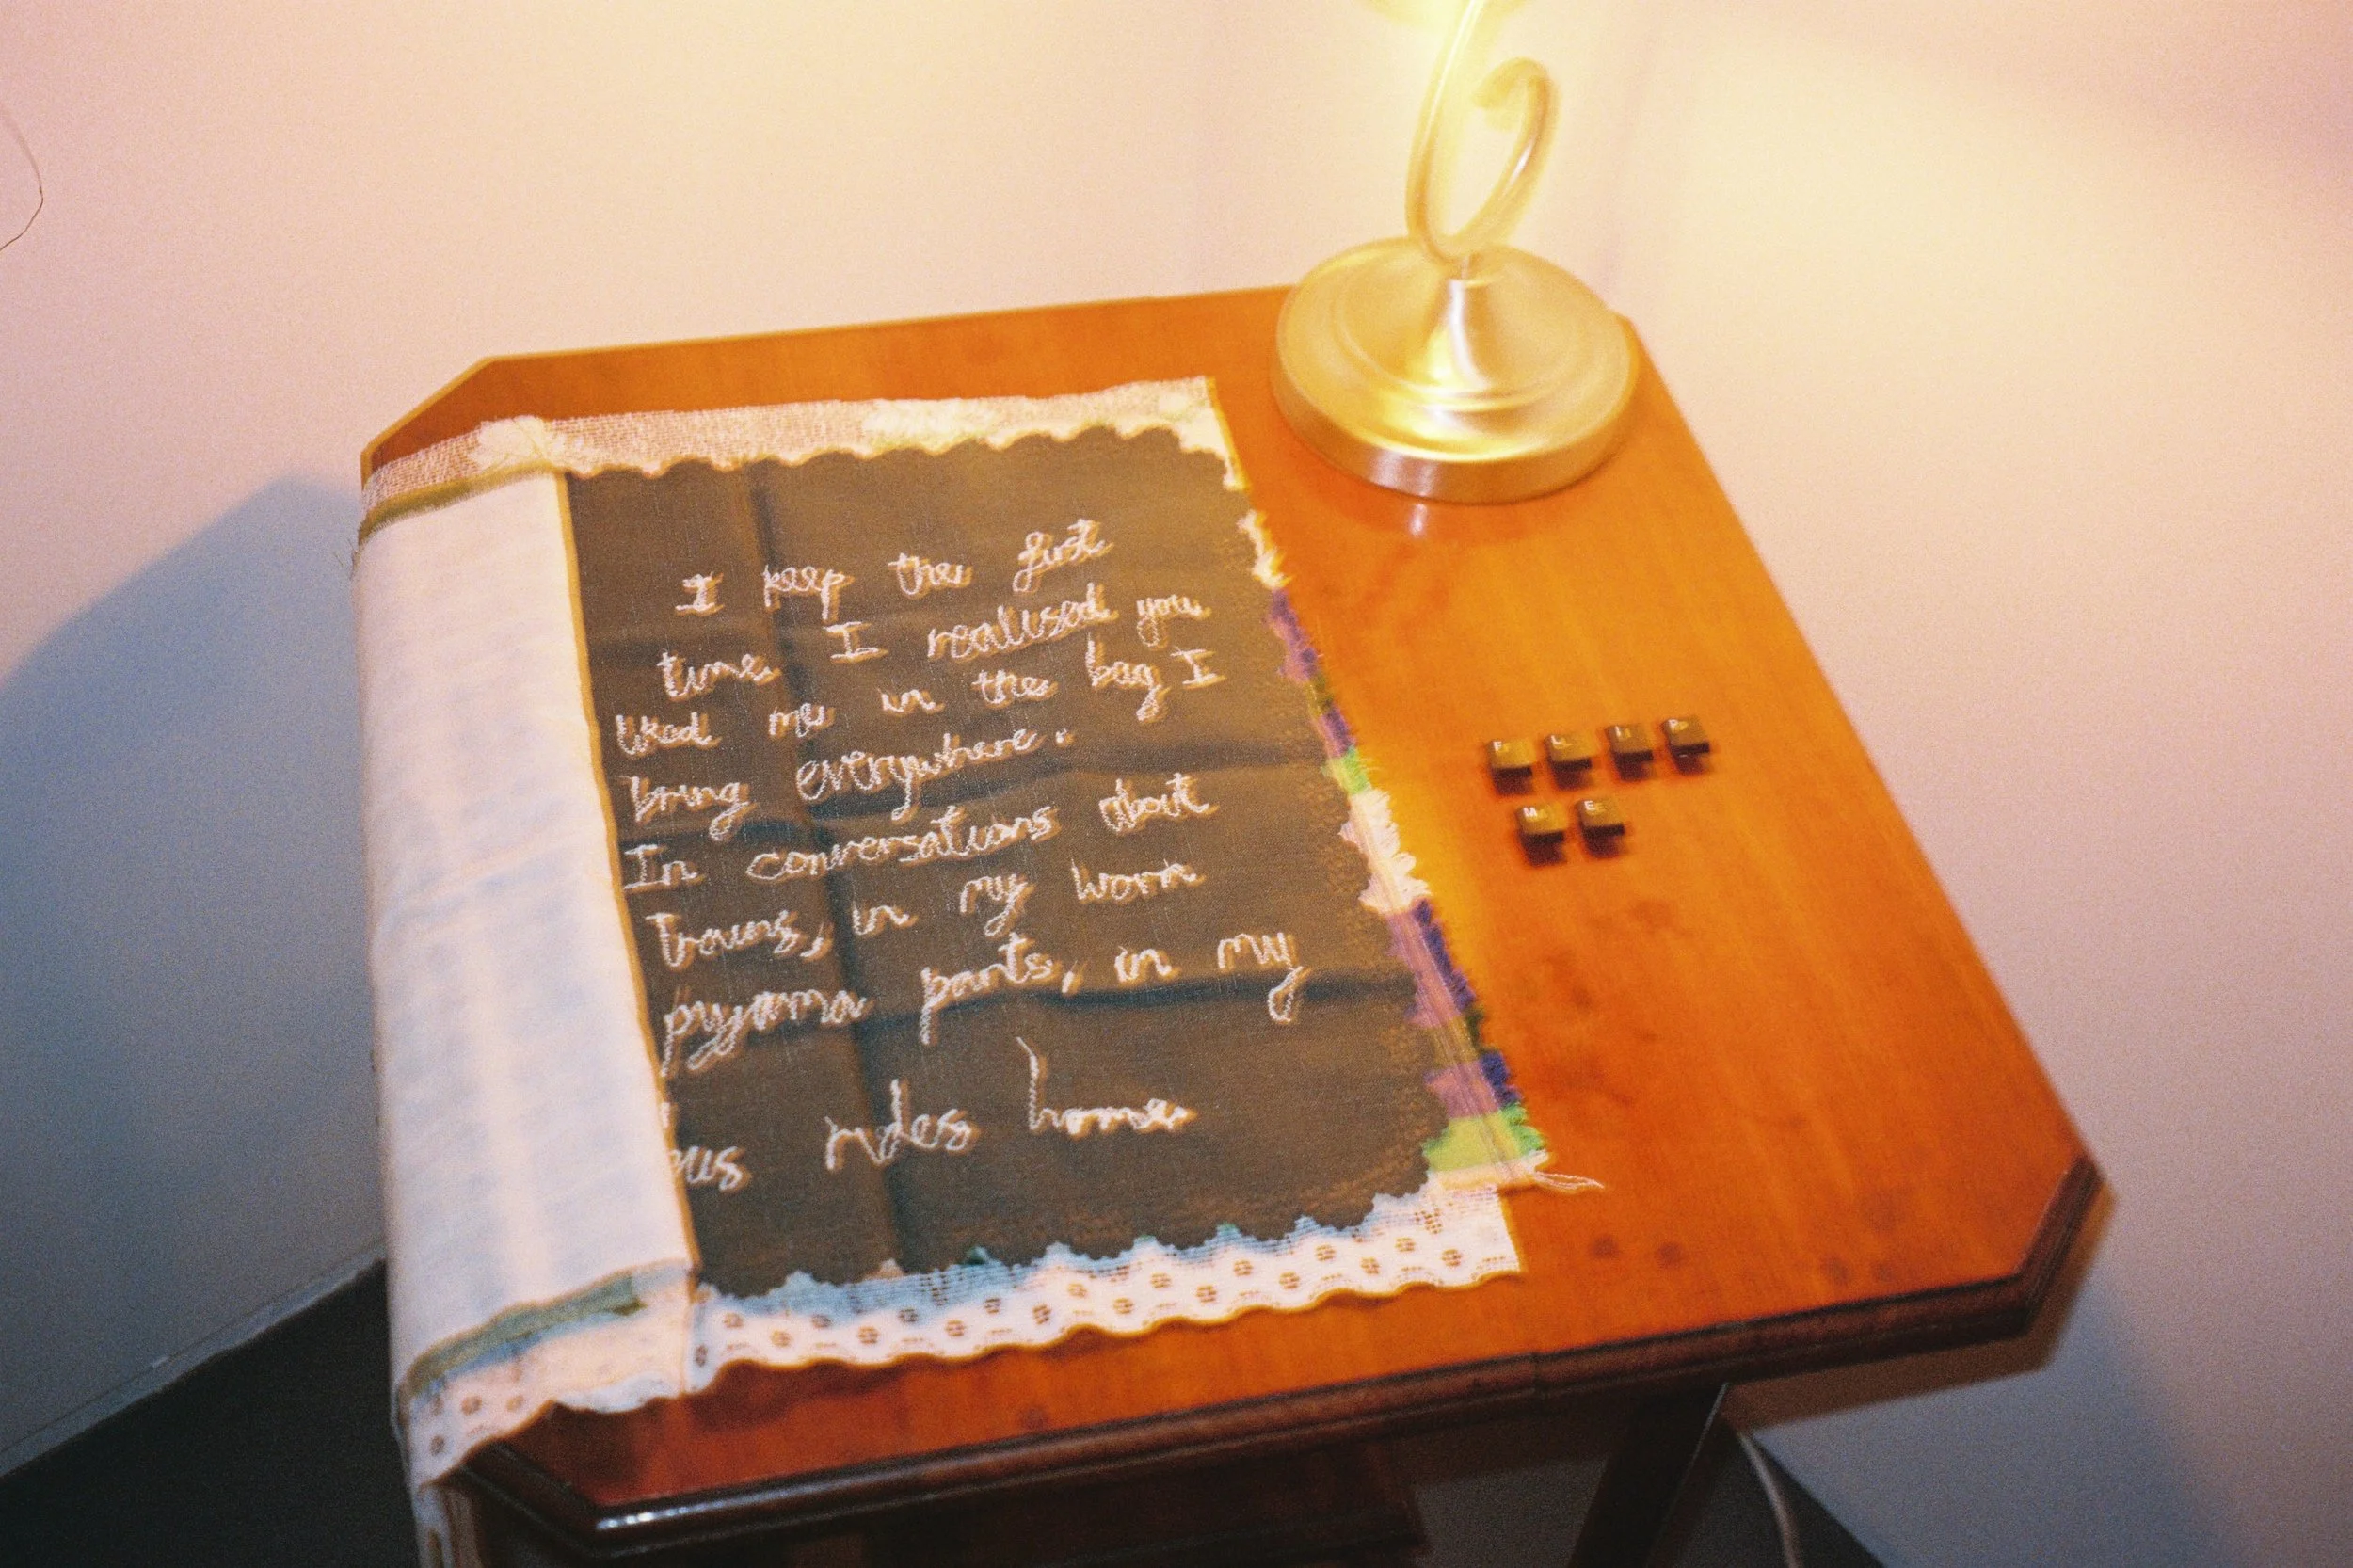 I keep the first
time I realised you
liked me in the bag I
bring everywhere.
In conversations about
Trains, in my worn
pyjama pants, in my
bus rides home
F L I P
M E